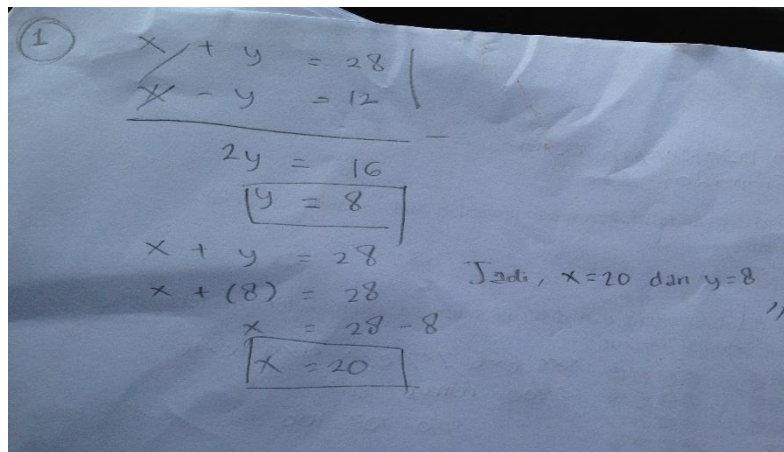 1
x + y = 28
x - y = 12
-
2y = 16
y = 8
x + y = 28
x + (8) = 28
x = 28 - 8
x = 20
Jadi, x=20 dan y=8